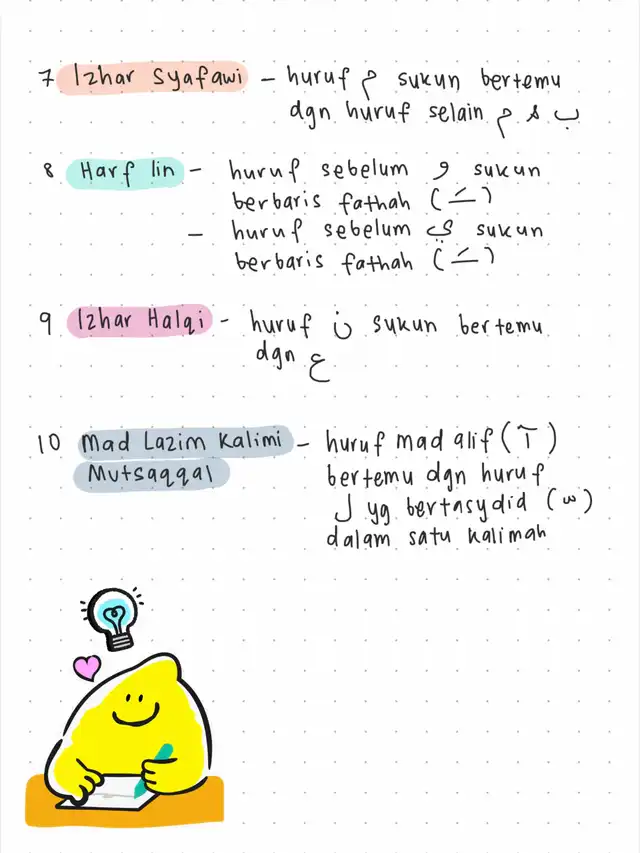 7 Izhar Syafawi – huruf م sukun bertemu
dgn huruf selain م & ب
8 Harf lin – huruf sebelum و sukun
berbaris fathah ( ـَ )
– huruf sebelum ي sukun
berbaris fathah ( ـَ )
9 Izhar Halqi – huruf ن sukun bertemu
dgn ع
10 Mad Lazim Kalimi – huruf mad alif ( آ )
Mutsaqqal bertemu dgn huruf
ل yg bertasydid ( ّ )
dalam satu kalimah